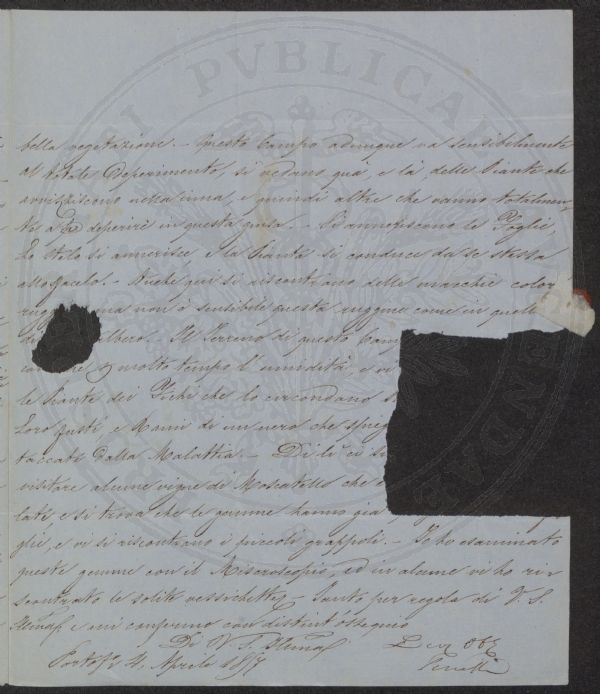 bella vegetazione. - Questo Campo adunque va sensibilmente
al totale deperimento, si vedano quà, e là delle Piante che
avvizziscono nella cima, e quindi altre che vanno totalmen-
te a deperire in questa guisa. - Si anneriscono le Foglie,
Lo stelo si annerisce, e la Pianta si conduce da se stessa
allo sfacelo. - Anche qui si riscontrano delle macchie color
ma non è sensibile questa ruggine come in quelle
albero. - Il Terreno di questo Camp
molto tempo l'umidità, e vi
le Piante dei Fichi che lo circondano
Loro fusti e Rami di un nero che spieg
taccati dalla Malattia. - Di lì ci
visitare alcune vigne di Moscatello che
late, e si trova che le gemme hanno già
glie, e vi si riscontrano i piccoli grappoli. - Io ho esaminato
queste gemme con il Microscopio, ed in alcune vi ho rin-
scontrato le solite vessichette - Tanto per regola di V. S.
Illma, e mi confermo con distint'ossequio
Di V. S. Illma
4. Aprile 1857
PUBLICAE